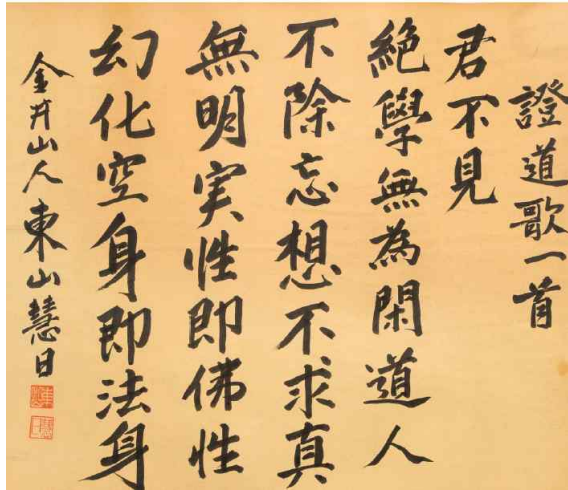 證道歌一首
君不見
絕學無為閑道人
不除忘想不求真
無明実性即佛性
幻化空身即法身
金井山人東山慧日